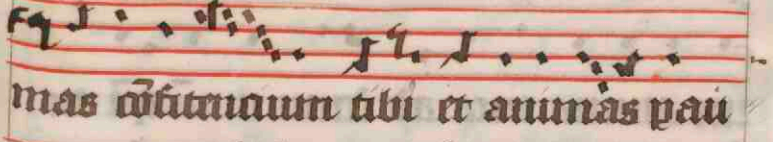 mas cõfitencium tibi et animas pau